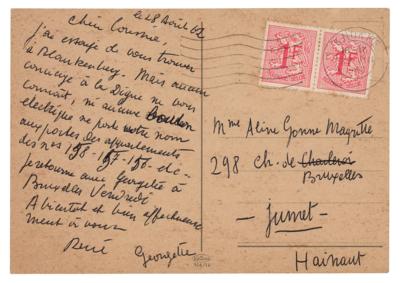 le 28 Août 62
Chère Cousine,
j'ai essayé de vous trouver
à Blankenberg. Mais aucun
concierge à la Digue ne vous
connait, ni aucun bouton
electrique ne porte votre nom
aux portes des appartements
des nos 158-157-156- etc-
je retourne avec Georgette à
Bruxelles Vendredi
A bientot et bien affectueuse
ment à vous
René
Georgette
1F
1F
Mme Aline Gonne Magritte
298 Ch. de Charleroi
Bruxelles
- Jumet -
Hainaut